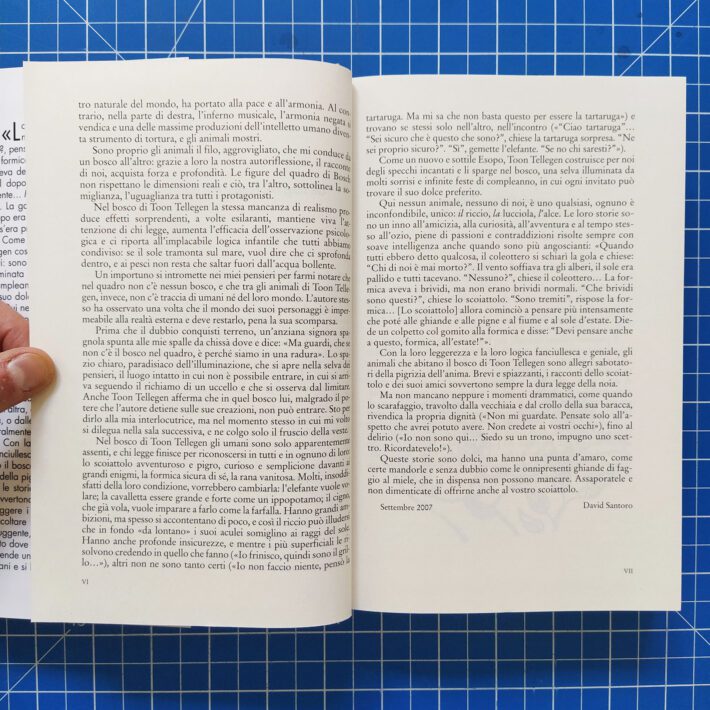 tro naturale del mondo, ha portato alla pace e all'armonia. Al con-
trario, nella parte di destra, l'inferno musicale, l'armonia negata si
vendica e una delle massime produzioni dell'intelletto umano diven-
ta strumento di tortura, e gli animali mostri.
Sono proprio gli animali il filo, aggrovigliato, che mi conduce da
un bosco all'altro: grazie a loro la nostra autoriflessione, il racconto
di noi, acquista forza e profondità. Le figure del quadro di Bosch
non rispettano le dimensioni reali e ciò, tra l'altro, sottolinea la so-
miglianza, l'uguaglianza tra tutti i protagonisti.
Nel bosco di Toon Tellegen la stessa mancanza di realismo pro-
duce effetti sorprendenti, a volte esilaranti, mantiene viva l'at-
tenzione di chi legge, aumenta l'efficacia dell'osservazione psicolo-
gica e ci riporta all'implacabile logica infantile che tutti abbiamo
condiviso: se il sole saltasse sul mare, vuol dire che ci sprofonda
dentro, e ai pesci non resta che saltar fuori dall'acqua bollente.
Un importuno si intromette nei miei pensieri per farmi notare che
nel quadro non c'è nessun bosco, e che tra gli animali di Toon Tel-
legen, invece, non c'è traccia di umani né del loro mondo. L'autore stes-
so ha osservato una volta che il mondo dei suoi personaggi è imper-
meabile alla realtà esterna e deve restarlo, pena la sua scomparsa.
Prima che il dubbio conquisti terreno, un'anziana signora spa-
gnola spunta alle mie spalle da chissà dove e dice: «Ma guardi, che se
non c'è il bosco nel quadro, è perché siamo in una radura». Lo spa-
zio chiaro, paradisiaco dell'illuminazione, che si apre nella selva dei
pensieri, il luogo intatto in cui non è possibile entrare, in cui si arri-
va seguendo il richiamo di un uccello e che si osserva dal limitare.
Anche Toon Tellegen afferma che in quel bosco lui, malgrado il po-
tere che l'autore detiene sulle sue creazioni, non può entrare. Sto per
dirlo alla mia interlocutrice, ma nel momento stesso in cui mi volto
si dilegua nella sala successiva, e ne colgo solo il fruscio della veste.
Nel bosco di Toon Tellegen gli umani sono solo apparentemente
assenti, e chi legge finisce per riconoscersi in tutti e in ognuno di loro:
lo scoiattolo avventuroso e pigro, curioso e semplicione davanti ai
grandi enigmi, la formica sicura di sé, la rana vanitosa. Molti, insod-
disfatti della loro condizione, vorrebbero cambiarla: l'elefante vuole vo-
lare; la cavalletta essere grande e forte come un ippopotamo; il cigno,
che già vola, vuole imparare a farlo come la farfalla. Hanno grandi am-
bizioni, ma spesso si accontentano di poco, e così il riccio può illudersi
che in fondo «da lontano» i suoi aculei somiglino ai raggi del sole.
Hanno anche profonde insicurezze, e mentre i più superficiali le ri-
solvono credendo in quello che fanno («Io frinisco, quindi sono il gril-
lo…»), altri non ne sono tanto certi («Io non faccio niente, pensò la
VI
tartaruga. Ma mi sa che non basta questo per essere la tartaruga») e
trovano se stessi solo nell'altro, nell'incontro («"Ciao tartaruga"…
"Sei sicuro che è questo che sono?", chiese la tartaruga sorpresa. "Ne
sei proprio sicuro?". "Sì", gemette l'elefante. "Se no chi saresti?"»).
Come un nuovo e sottile Esopo, Toon Tellegen costruisce per noi
degli specchi incantati e li sparge nel bosco, una selva illuminata da
molti sorrisi e infinite feste di compleanno, in cui ogni invitato può
trovare il suo dolce preferito.
Qui nessun animale, nessuno di noi, è uno qualsiasi, ognuno è
inconfondibile, unico: il riccio, la lucciola, l'alce. Le loro storie so-
no un inno all'amicizia, alla curiosità, all'avventura e al tempo stes-
so all'ozio, piene di passioni e contraddizioni risolte sempre con
soave intelligenza anche quando sono più angoscianti: «Quando
tutti ebbero detto qualcosa, il coleottero si schiarì la gola e chiese:
"Chi di noi è mai morto?". Il vento soffiava tra gli alberi, il sole era
pallido e tutti tacevano. "Nessuno?", chiese il coleottero… La for-
mica aveva i brividi, ma non erano brividi normali. "Che brividi
sono questi?", chiese lo scoiattolo. "Sono tremiti", rispose la for-
mica… [Lo scoiattolo] allora cominciò a pensare più intensamente
che poté alle ghiande e alle pigne e al fiume e al sole d'estate. Die-
de un colpetto col gomito alla formica e disse: "Devi pensare anche
a questo, formica, all'estate!"».
Con la loro leggerezza e la loro logica fanciullesca e geniale, gli
animali che abitano il bosco di Toon Tellegen sono allegri sabotato-
ri della pigrizia dell'anima. Brevi e spiazzanti, i racconti dello scoiat-
tolo e dei suoi amici sovvertono sempre la dura legge della noia.
Ma non mancano neppure i momenti drammatici, come quando
lo scarafaggio, travolto dalla vecchiaia e dal crollo della sua baracca,
rivendica la propria dignità («Non mi guardate. Pensate solo all'a-
spetto che avrei potuto avere. Non credete ai vostri occhi»), fino al
delirio («Io non sono qui… Siedo su un trono, impugno uno scet-
tro. Ricordatevelo!»).
Queste storie sono dolci, ma hanno una punta d'amaro, come
certe mandorle e senza dubbio come le onnipresenti ghiande di fag-
gio al miele, che in dispensa non possono mancare. Assaporatele e
non dimenticate di offrirne anche al vostro scoiattolo.
Settembre 2007 David Santoro
VII